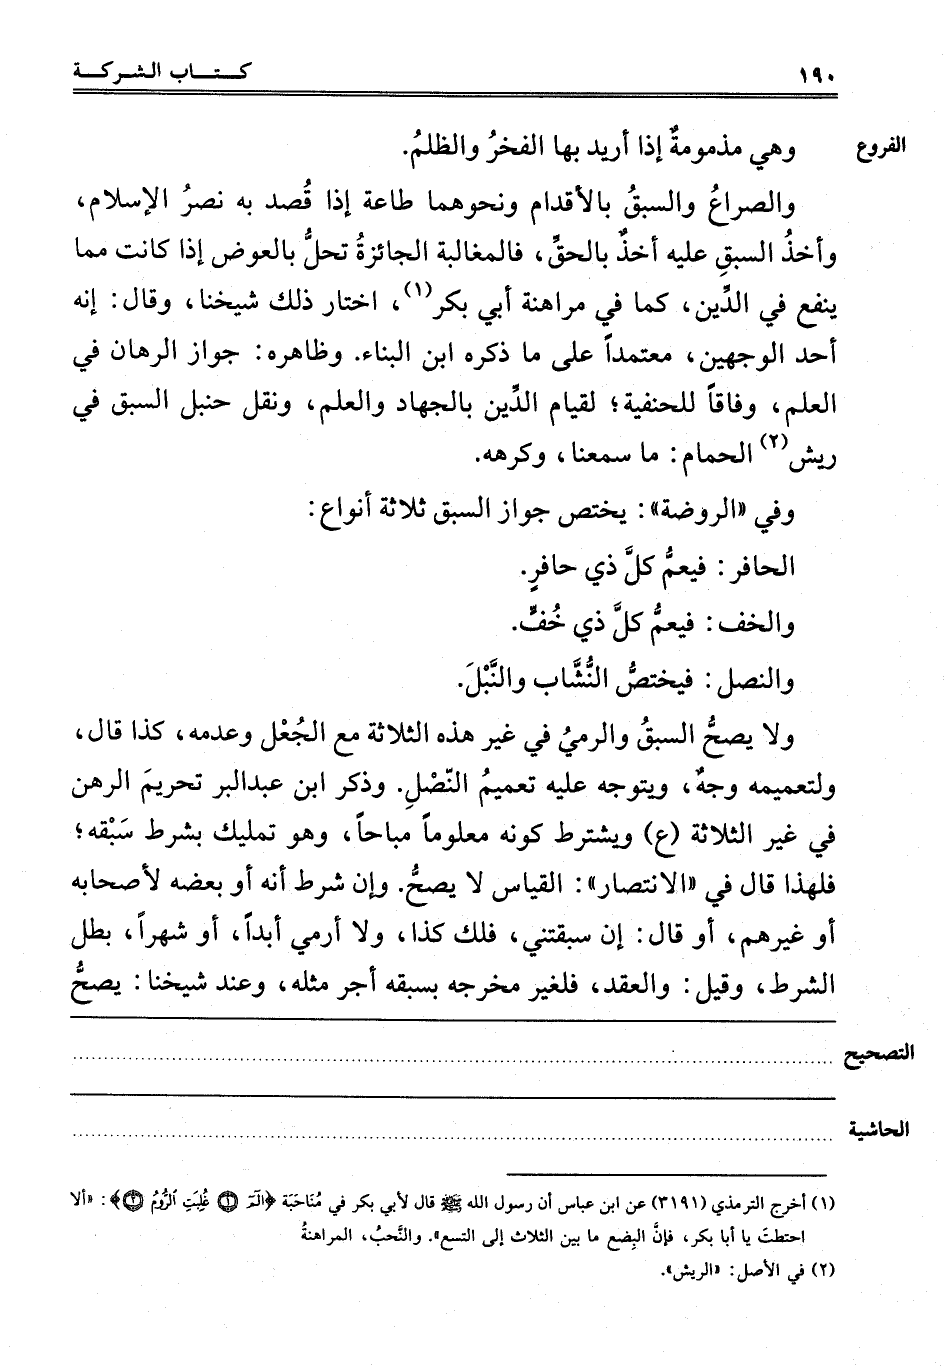 ١٩٠ كتاب الشركة
الفروع وهي مذمومةٌ إذا أريد بها الفخرُ والظلمُ.
والصراعُ والسبقُ بالأقدام ونحوهما طاعة إذا قُصد به نصرُ الإسلام،
وأخذُ السبقِ عليه أخذٌ بالحقِّ، فالمغالبة الجائزةُ تحلُّ بالعوض إذا كانت مما
ينفع في الدِّين، كما في مراهنة أبي بكر(١)، اختار ذلك شيخنا، وقال: إنه
أحد الوجهين، معتمداً على ما ذكره ابن البناء. وظاهره: جواز الرهان في
العلم، وفاقاً للحنفية؛ لقيام الدِّين بالجهاد والعلم، ونقل حنبل السبق في
ريش(٢) الحمام: ما سمعنا، وكرهه.
وفي «الروضة»: يختص جواز السبق ثلاثة أنواع:
الحافر: فيعمُّ كلَّ ذي حافرٍ.
والخف: فيعمُّ كلَّ ذي خُفٍّ.
والنصل: فيختصُّ النُّشَّاب والنَّبْلَ.
ولا يصحُّ السبقُ والرميُ في غير هذه الثلاثة مع الجُعْل وعدمه، كذا قال،
ولتعميمه وجهٌ، ويتوجه عليه تعميمُ النّصْلِ. وذكر ابن عبدالبر تحريمَ الرهن
في غير الثلاثة (ع) ويشترط كونه معلوماً مباحاً، وهو تمليك بشرط سَبْقه؛
فلهذا قال في «الانتصار»: القياس لا يصحُّ. وإن شرط أنه أو بعضه لأصحابه
أو غيرهم، أو قال: إن سبقتني، فلك كذا، ولا أرمي أبداً، أو شهراً، بطل
الشرط، وقيل: والعقد، فلغير مخرجه بسبقه أجر مثله، وعند شيخنا: يصحُّ
التصحيح ............................................................
الحاشية ............................................................
(١) أخرج الترمذي (٣١٩١) عن ابن عباس أن رسول الله ﷺ قال لأبي بكر في مُنَاحَبَة ﴿الٓمٓ ۝١ غُلِبَتِ ٱلرُّومُ ۝٢﴾: «ألا
احتطتَ يا أبا بكر، فإنَّ البِضع ما بين الثلاث إلى التسع». والنَّحبُ، المراهنةُ
(٢) في الأصل: «الريش».